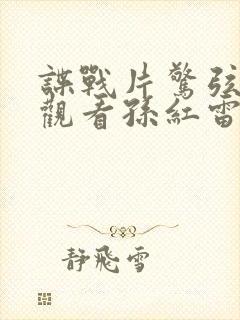 諜戰片驚弦
觀看孫紅雷
靜飛雪